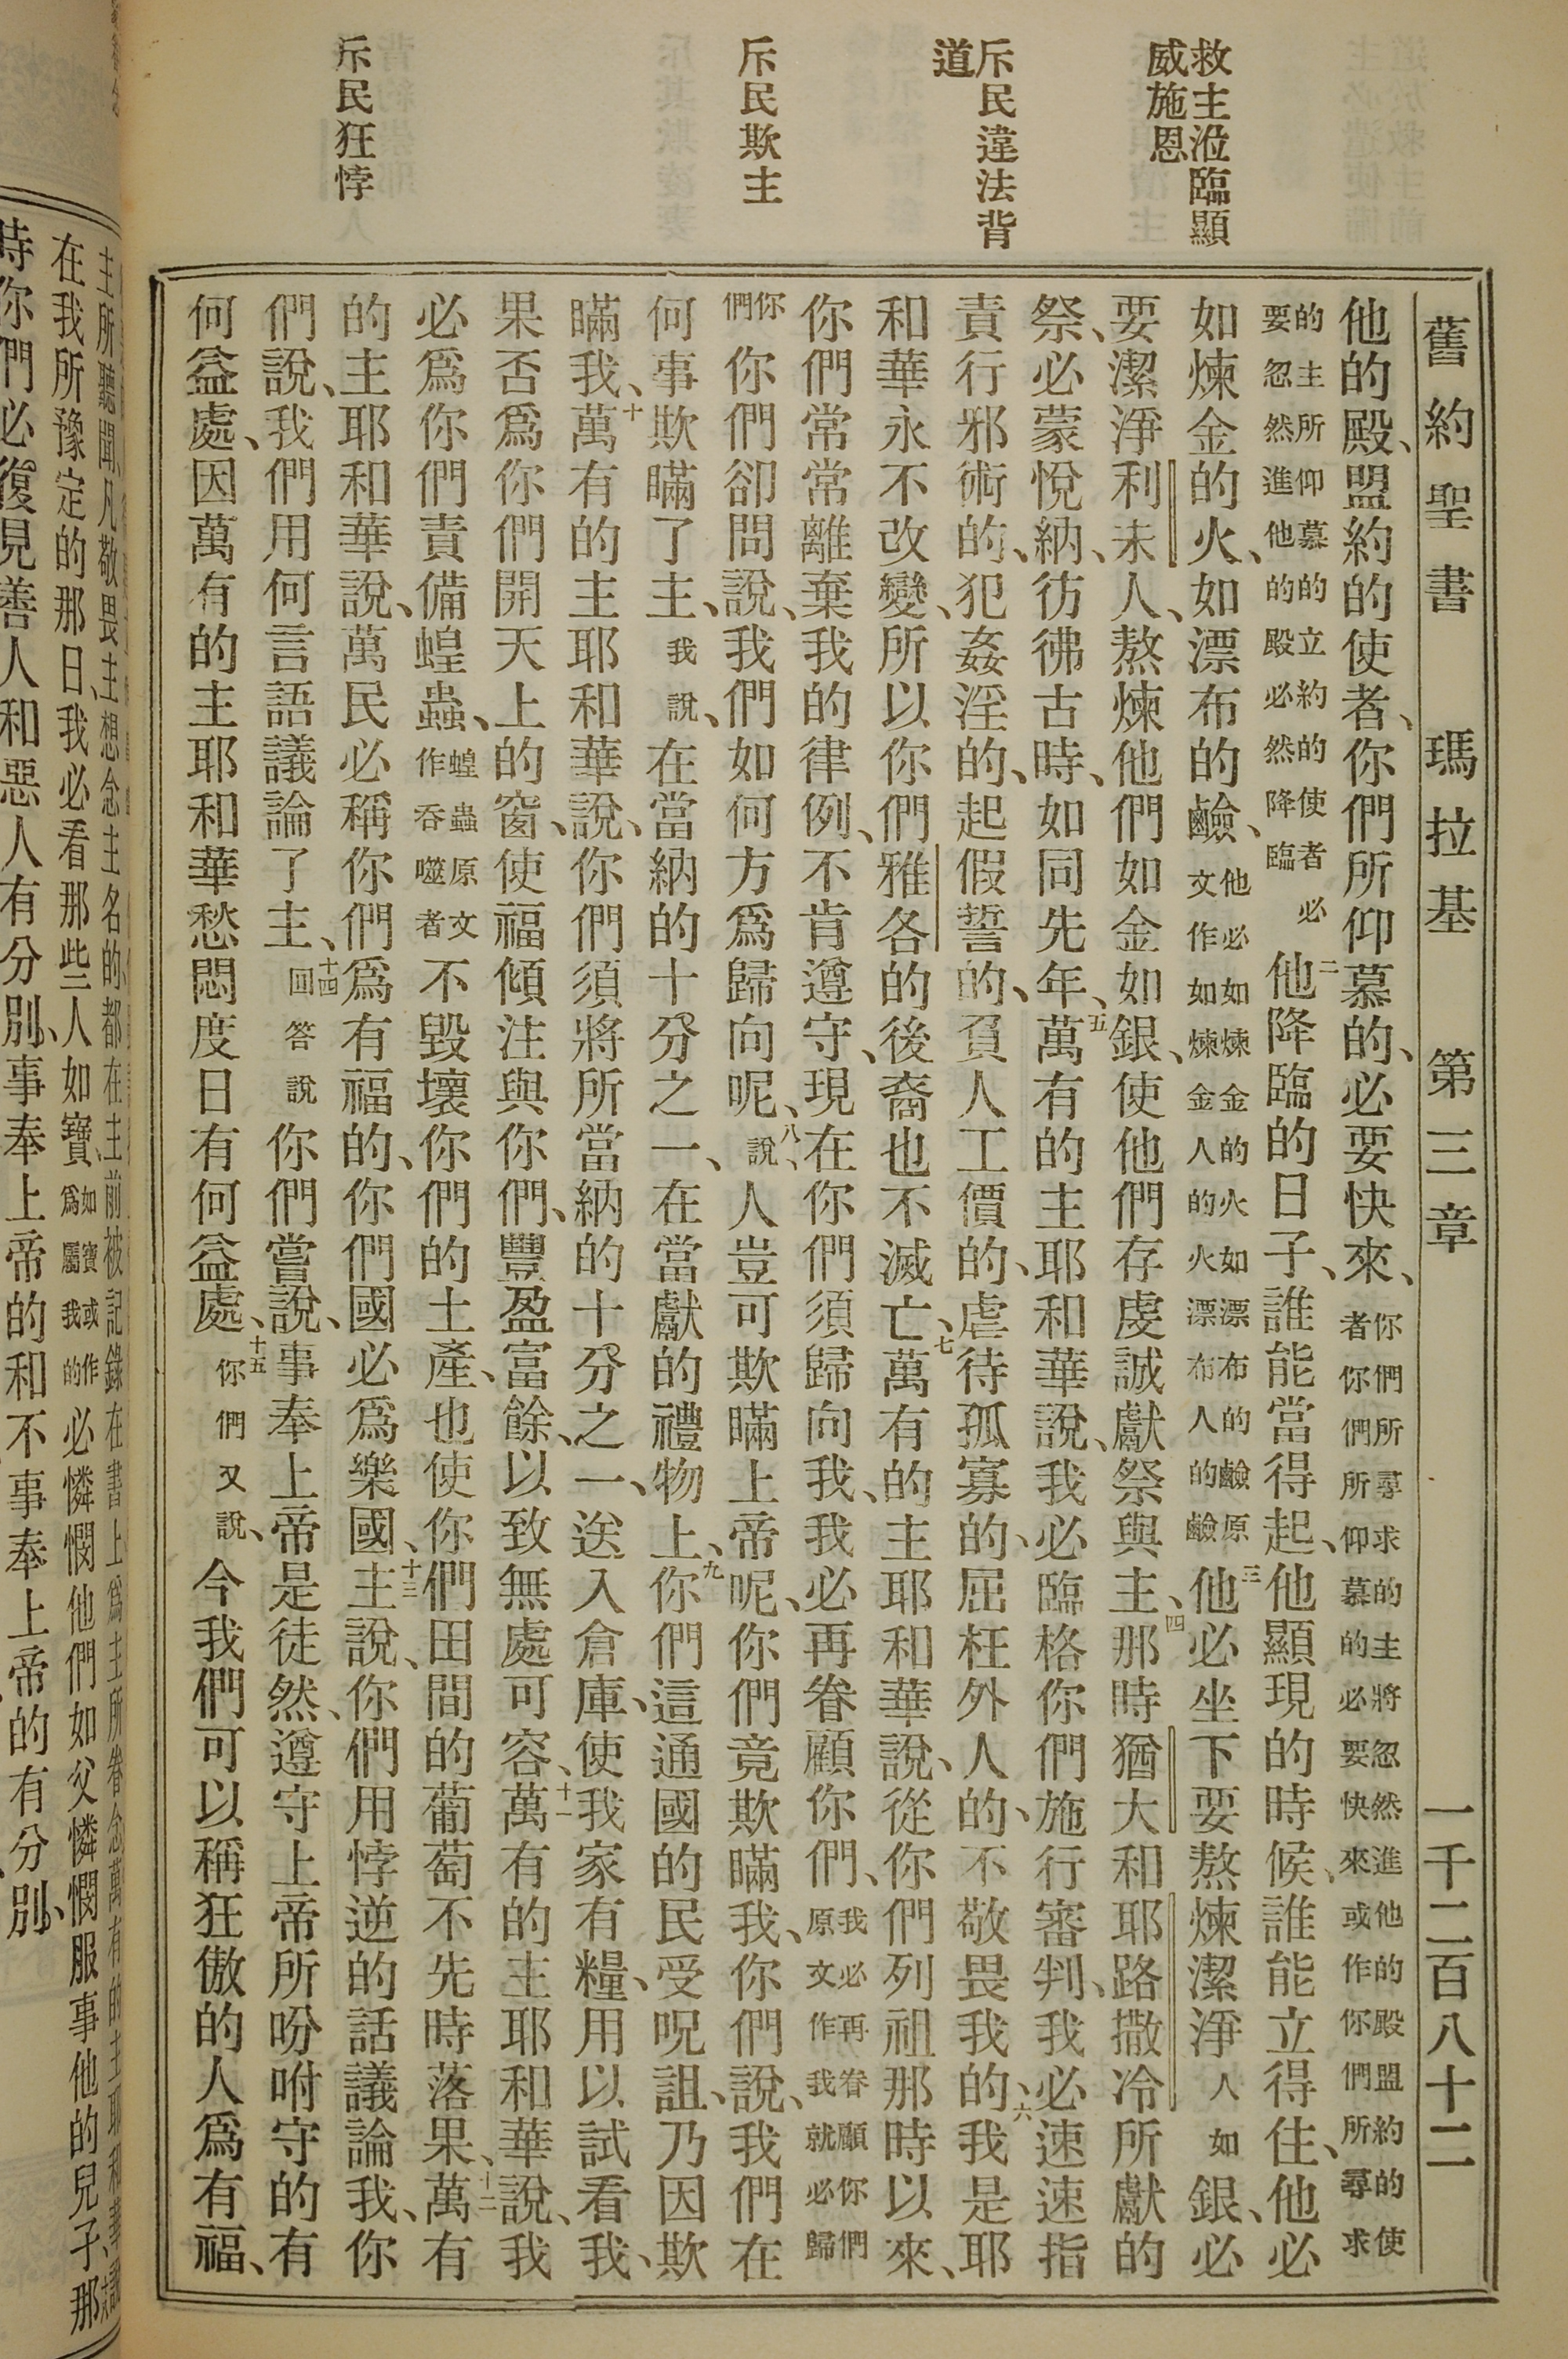 救主涖臨顯
威施恩
斥民違法背
道
斥民欺主
斥民狂悖
舊約聖書 瑪拉基 第三章 一千二百八十二
他的殿、盟約的使者、你們所仰慕的、必要快來、你們所尋求的主將忽然進他的殿盟約的使
者你們所仰慕的必要快來或作你們所尋求
的主所仰慕的立約的使者必
要忽然進他的殿必然降臨 二他降臨的日子、誰能當得起、他顯現的時候、誰能立得住、他必
如煉金的火、如漂布的鹼、他必如煉金的火如漂布的鹼原
文作如煉金人的火漂布人的鹼 三他必坐下要熬煉潔淨人如銀、必
要潔淨利未人、熬煉他們如金如銀、使他們存虔誠獻祭與主、四那時猶大和耶路撒冷所獻的
祭、必蒙悅納、彷彿古時、如同先年、五萬有的主耶和華說、我必臨格你們施行審判、我必速速指
責行邪術的、犯姦淫的、起假誓的、負人工價的、虐待孤寡的、屈枉外人的、不敬畏我的、六我是耶
和華永不改變、所以你們雅各的後裔也不滅亡、七萬有的主耶和華說、從你們列祖那時以來、
你們常常離棄我的律例、不肯遵守、現在你們須歸向我、我必再眷顧你們、我必再眷顧你們
原文作我就必歸
你
們 你們卻問說、我們如何方爲歸向呢、八說、人豈可欺瞞上帝呢、你們竟欺瞞我、你們說、我們在
何事欺瞞了主、我說、在當納的十分之一、在當獻的禮物上、九你們這通國的民受呪詛、乃因欺
瞞我、十萬有的主耶和華說、你們須將所當納的十分之一、送入倉庫、使我家有糧、用以試看我、
果否爲你們開天上的窗、使福傾注與你們、豐盈富餘、以致無處可容、十一萬有的主耶和華說、我
必爲你們責備蝗蟲、蝗蟲原文
作吞噬者 不毀壞你們的土產、也使你們田間的葡萄不先時落果、十二萬有
的主耶和華說、萬民必稱你們爲有福的、你們國必爲樂國、十三主說、你們用悖逆的話議論我、你
們說、我們用何言語議論了主、十四回答說你們嘗說、事奉上帝是徒然、遵守上帝所吩咐守的有
何益處、因萬有的主耶和華愁悶度日有何益處、十五你們又說、今我們可以稱狂傲的人爲有福、
主所聽聞、凡敬畏主、想念主名的都在主前被記錄在書上爲主所眷念萬有的主耶和華說
在我所豫定的那日、我必看那些人如寶、如寶或作
爲屬我的 必憐憫他們如父憐憫服事他的兒子、那
時你們必復見善人和惡人有分別、事奉上帝的和不事奉上帝的有分別、